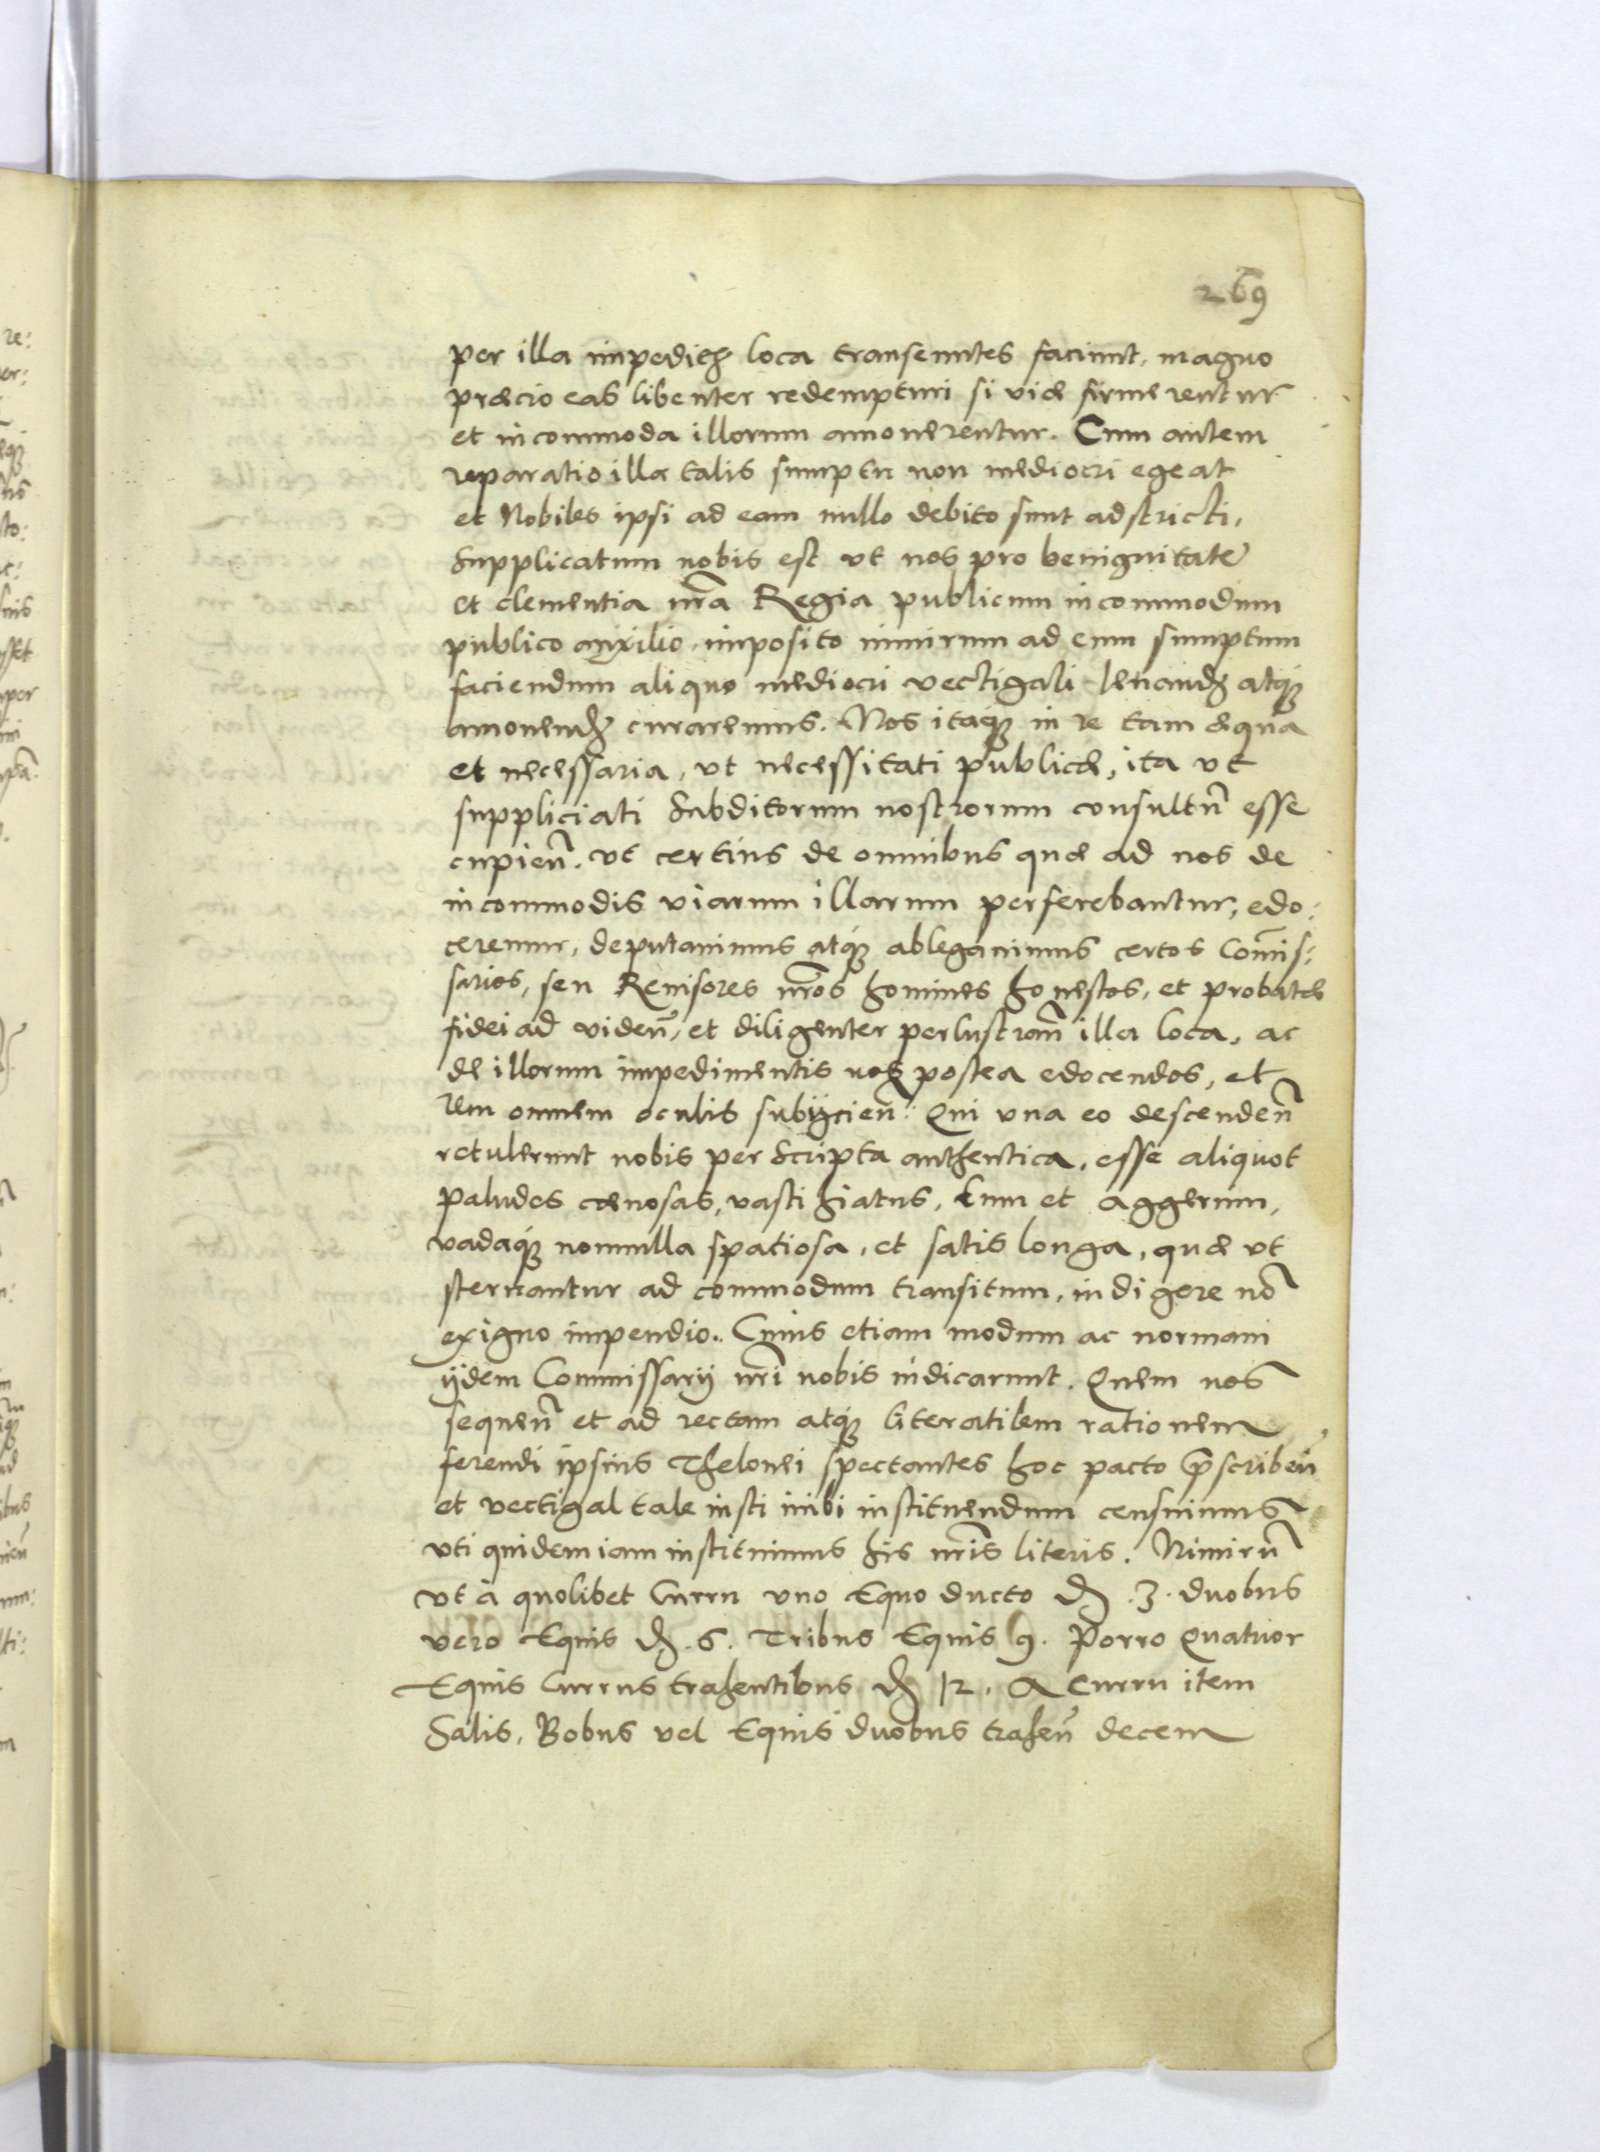 269
per illa impedita loca transeuntes faciunt, magno
præcio eas libenter redempturi si viæ firmærentur
et incommoda illorum amouerentur. Cum autem
reparatio illa talis sumptu non mediocri egeat
et Nobiles ipsi ad eam nullo debito sunt adstricti,
Supplicatum nobis est vt nos pro benignitate
et clementia nrã Regia publicum incommodum
publico auxilio, imposito nimirum ad eum sumptum
faciendum aliquo mediocri vectigali leuandũ atq́ȝ
amouendũ curaremus. Nos itaq́ȝ in re tam æqua
et necessaria, vt necessitati publicæ, ita vt
suppliciati Subditorum nostrorum consultũ esse
cupieñ. vt certius de omnibus quæ ad nos de
incommodis viarum illarum perferebantur, edo:
ceremur, deputauimus atq́ȝ ablegauimus certos Com̃is:
sarios, seu Reuisores nrõs homines honestos, et probatæ
fidei ad videñ, et diligenter perlustrañ illa loca, ac
de illorum impedimentis nos postea edocendos, et
rem omnem oculis subijcieñ: Qui vna eo descendeñ
retulerunt nobis per Scripta authentica, esse aliquot
paludes cænosas, vasti hiatus, tum et Aggerum,
vadaq́ȝ nonnulla spatiosa, et satis longa, quæ vt
sternantur ad commodum transitum, indigere nõ
exiguo impendio. Cuius etiam modum ac normam
ijdem Commissarij nrĩ nobis indicarunt. Quem nos
sequeñ et ad rectam atq́ȝ literatilem rationem
ferendi ipsius Thelonei spectantes hoc pacto p̃scribeñ
et vectigal tale insti inibi instituendum censuimus
vti quidem iam instituimus his nrĩs literis. Nimirũ
vt à quolibet Curru vno Equo ducto đ. 3. duobus
vero Equis đ. 6. Tribus Equis 9. Porro Quatuor
Equis Currus trahentibus đ 12. A Curru item
Salis, Bobus vel Equis duobus traheñ decem